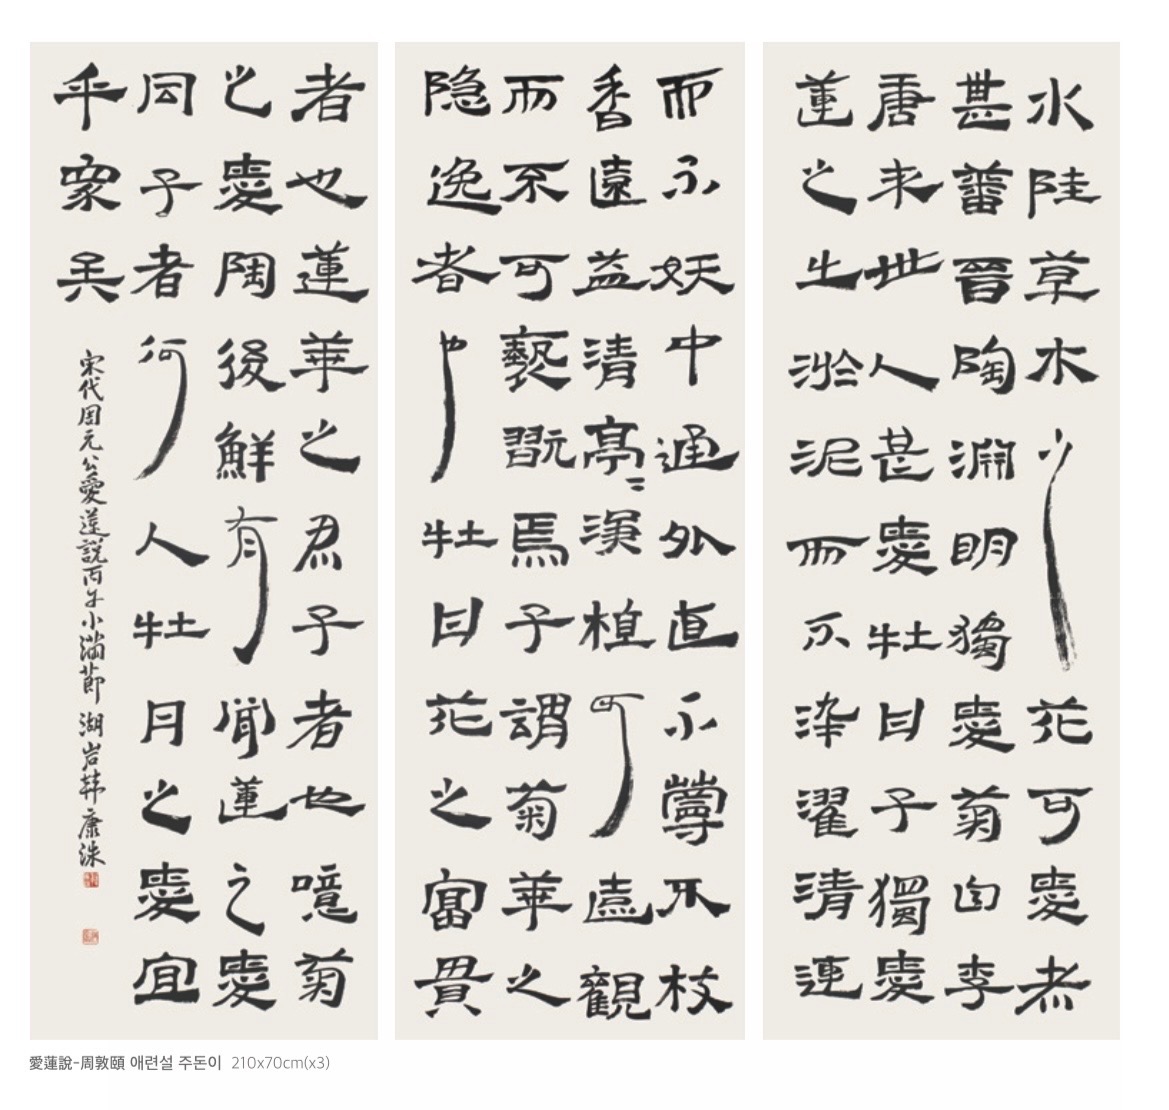 水陸草木之花可愛者
甚蕃晉陶淵明獨愛菊自李
唐来世人甚愛牡丹予獨愛
蓮之出淤泥而不染濯清漣
而不妖中通外直不蔓不枝
香遠益清亭〻淨植可遠觀
而不可褻翫焉予謂菊華之
隐逸者也牡丹花之富貴
者也蓮華之君子者也噫菊
之愛陶後鮮有聞蓮之愛
同予者何人牡丹之愛宜
乎衆矣
宋代周元公愛蓮說丙午小滿節 湖岩韓康洙
愛蓮說-周敦頤 애련설 주돈이 210x70cm(x3)